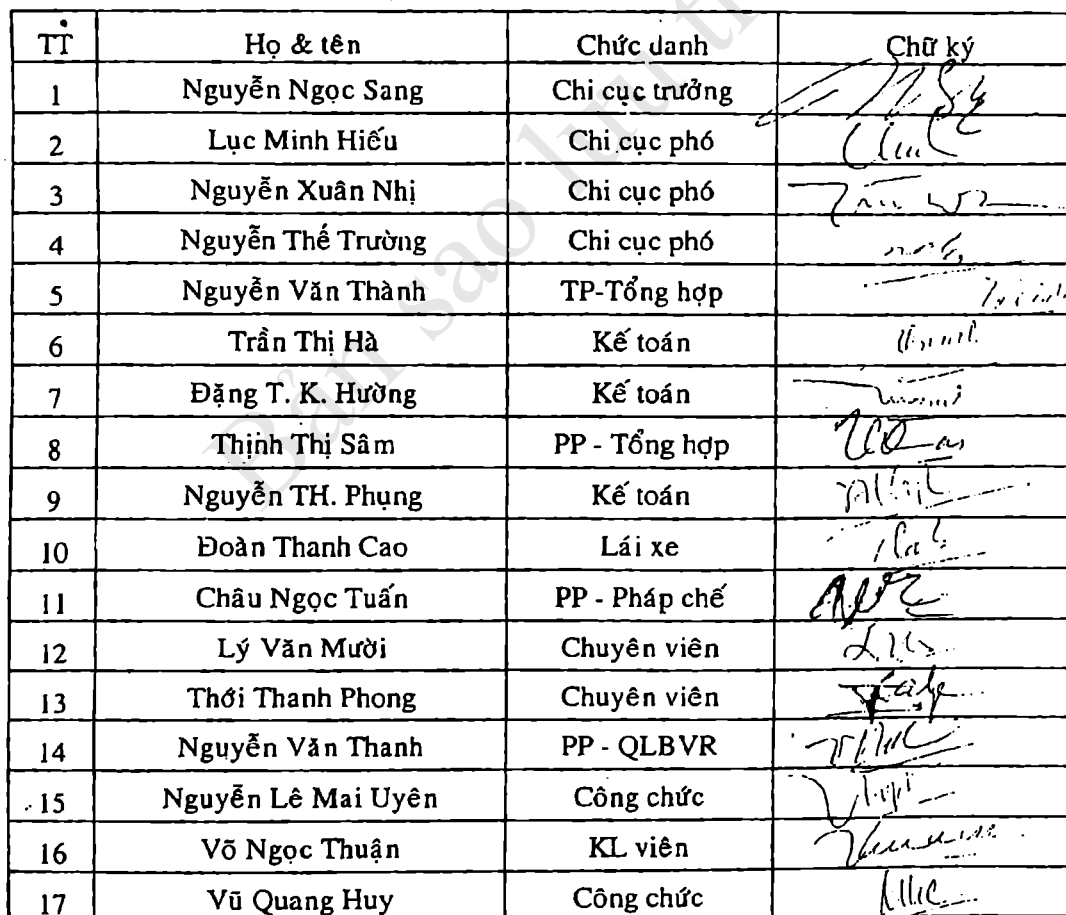 TT Họ & tên Chức danh Chữ ký
1 Nguyễn Ngọc Sang Chi cục trưởng
2 Lục Minh Hiếu Chi cục phó
3 Nguyễn Xuân Nhị Chi cục phó
4 Nguyễn Thế Trường Chi cục phó
5 Nguyễn Văn Thành TP-Tổng hợp
6 Trần Thị Hà Kế toán
7 Đặng T. K. Hường Kế toán
8 Thịnh Thị Sâm PP - Tổng hợp
9 Nguyễn TH. Phụng Kế toán
10 Đoàn Thanh Cao Lái xe
11 Châu Ngọc Tuấn PP - Pháp chế
12 Lý Văn Mười Chuyên viên
13 Thới Thanh Phong Chuyên viên
14 Nguyễn Văn Thanh PP - QLBVR
15 Nguyễn Lê Mai Uyên Công chức
16 Võ Ngọc Thuận KL viên
17 Vũ Quang Huy Công chức
Bản sao lưu